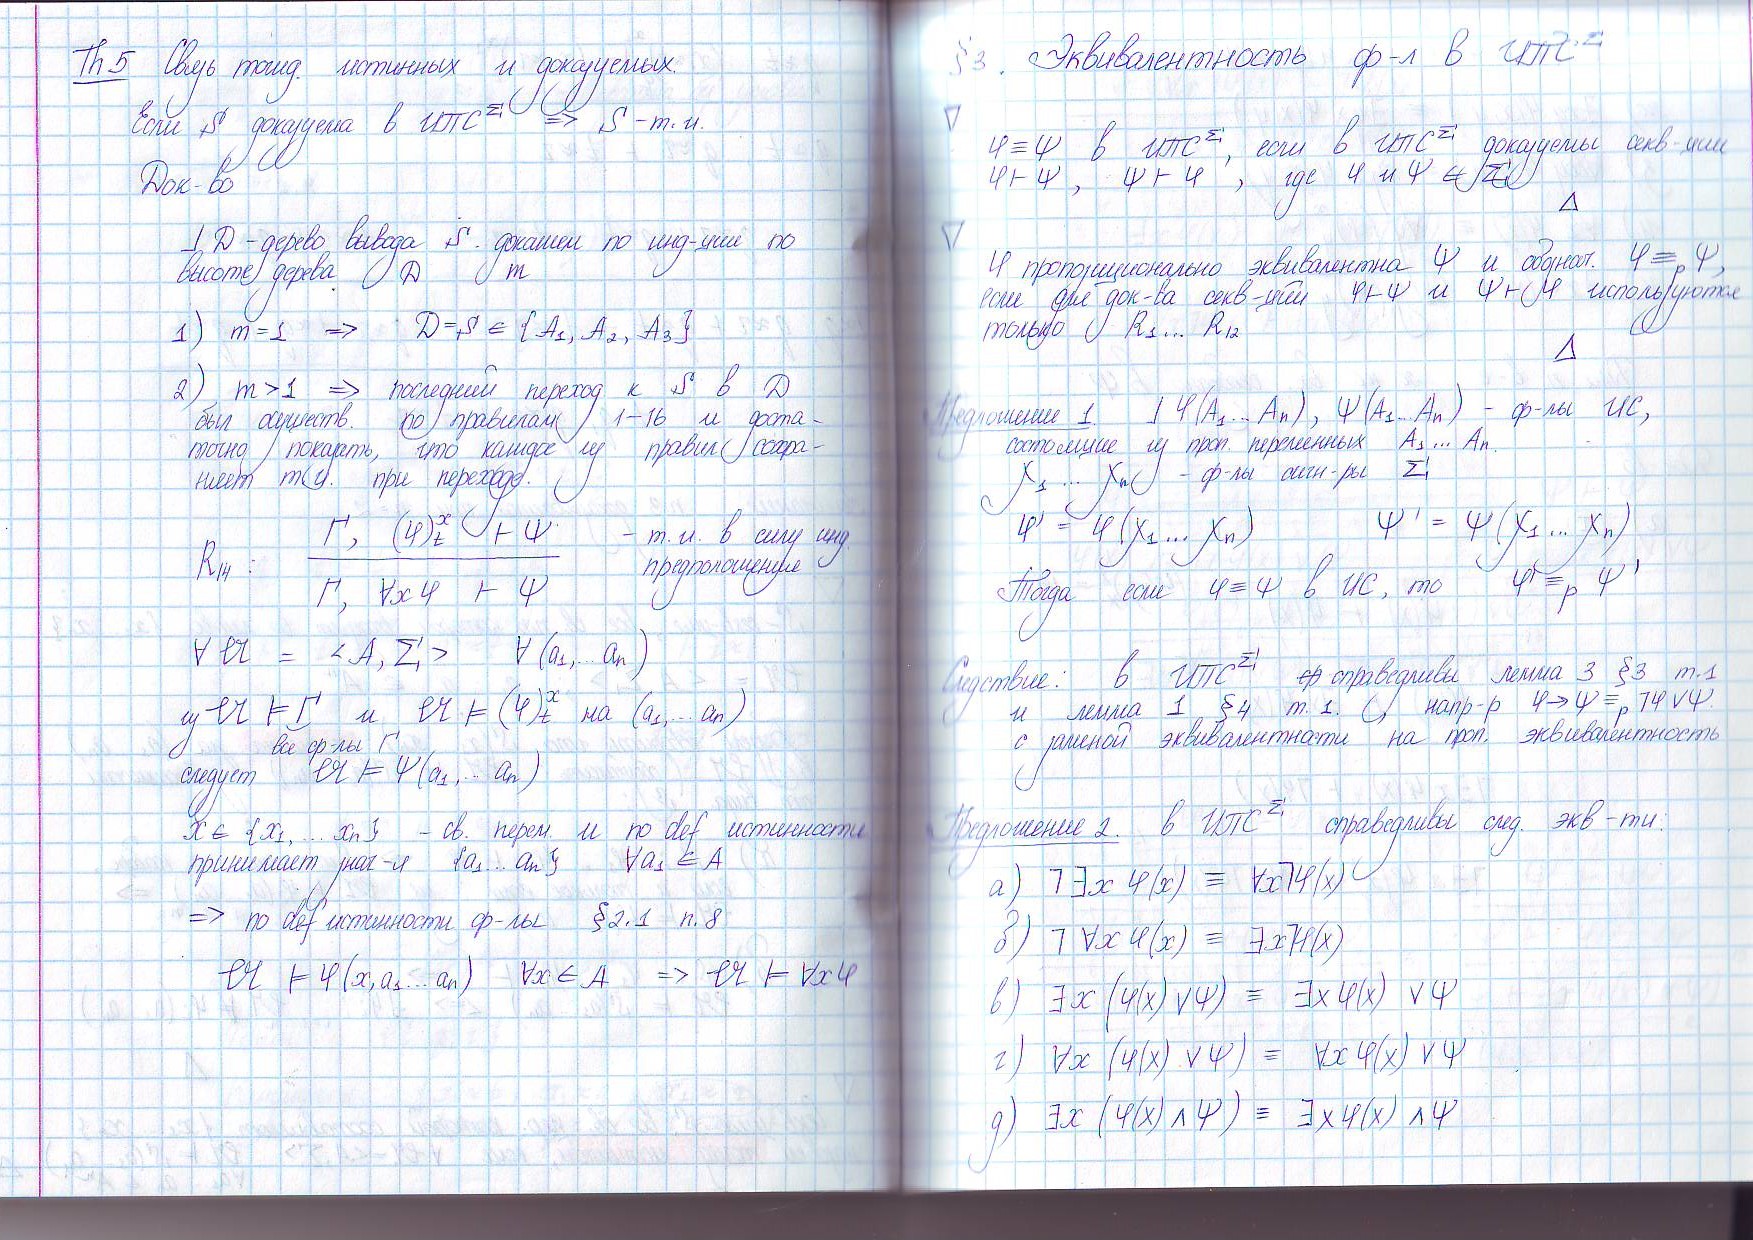 Th 5 Связь тожд. истинных и доказуемых.
Если S доказуема в ИПС^Σ => S - т.и.
Док-во
] D - дерево вывода S. докажем по инд-ции по
высоте дерева D m
1) m=1 => D=S ∈ {A₁, A₂, A₃}
2) m>1 => последний переход к S в D
был осуществ. по правилам 1-16 и доста-
точно показать, что каждое из правил сохра-
няет т.и. при переходе.
Γ, (φ)ˣₜ ⊢ ψ - т.и. в силу инд.
R₁₄ : предположения
Γ, ∀xφ ⊢ ψ
∀ 𝔄 = <A, Σ> ∀(a₁,... aₙ)
из 𝔄 ⊨ Γ и 𝔄 ⊨ (φ)ˣₜ на (a₁,... aₙ)
все ф-лы Γ
следует 𝔄 ⊨ ψ(a₁,... aₙ)
x ∈ {x₁, ... xₙ} - св. перем. и по def истинности
принимает знач-я {a₁... aₙ} ∀a₁ ∈ A
=> по def истинности ф-лы §2.1 п.8
𝔄 ⊨ φ(x, a₁... aₙ) ∀x ∈ A => 𝔄 ⊨ ∀xφ
§3. Эквивалентность ф-л в ИПС^Σ
∇
φ ≡ ψ в ИПС^Σ, если в ИПС^Σ доказуемы секв-ции
φ ⊢ ψ, ψ ⊢ φ, где φ и ψ ∈ Σ
Δ
∇
φ пропозиционально эквивалентна ψ и обознач. φ ≡ₚ ψ,
если для док-ва секв-ций φ ⊢ ψ и ψ ⊢ φ используются
только R₁... R₁₂
Δ
Предложение 1. ] φ(A₁... Aₙ), ψ(A₁...Aₙ) - ф-лы ИС,
состоящие из проп. переменных A₁... Aₙ.
χ₁ ... χₙ - ф-лы сигн-ры Σ
φ' = φ(χ₁... χₙ) ψ' = ψ(χ₁... χₙ)
Тогда если φ ≡ ψ в ИС, то φ' ≡ₚ ψ'
Следствие: в ИПС^Σ справедливы лемма 3 §3 т.1
и лемма 1 §4 т.1. (, напр-р φ → ψ ≡ₚ ¬φ ∨ ψ.
с заменой эквивалентности на проп. эквивалентность
Предложение 2. в ИПС^Σ справедливы след. экв-ти:
а) ¬∃x φ(x) ≡ ∀x¬φ(x)
б) ¬∀x φ(x) ≡ ∃x¬φ(x)
в) ∃x (φ(x) ∨ ψ) ≡ ∃x φ(x) ∨ ψ
г) ∀x (φ(x) ∨ ψ) ≡ ∀x φ(x) ∨ ψ
д) ∃x (φ(x) ∧ ψ) ≡ ∃x φ(x) ∧ ψ